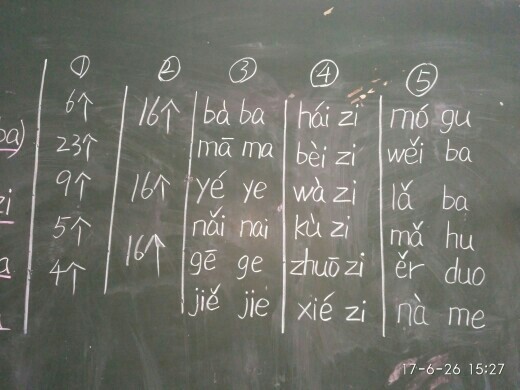 ba)
zi
a
①
6个
23个
9个
5个
4个
②
16个
16个
16个
③
bà ba
mā ma
yé ye
nǎi nai
gē ge
jiě jie
④
hái zi
bèi zi
wà zi
kù zi
zhuō zi
xié zi
⑤
mó gu
wěi ba
lǎ ba
mǎ hu
ěr duo
nà me
17-6-26 15:27